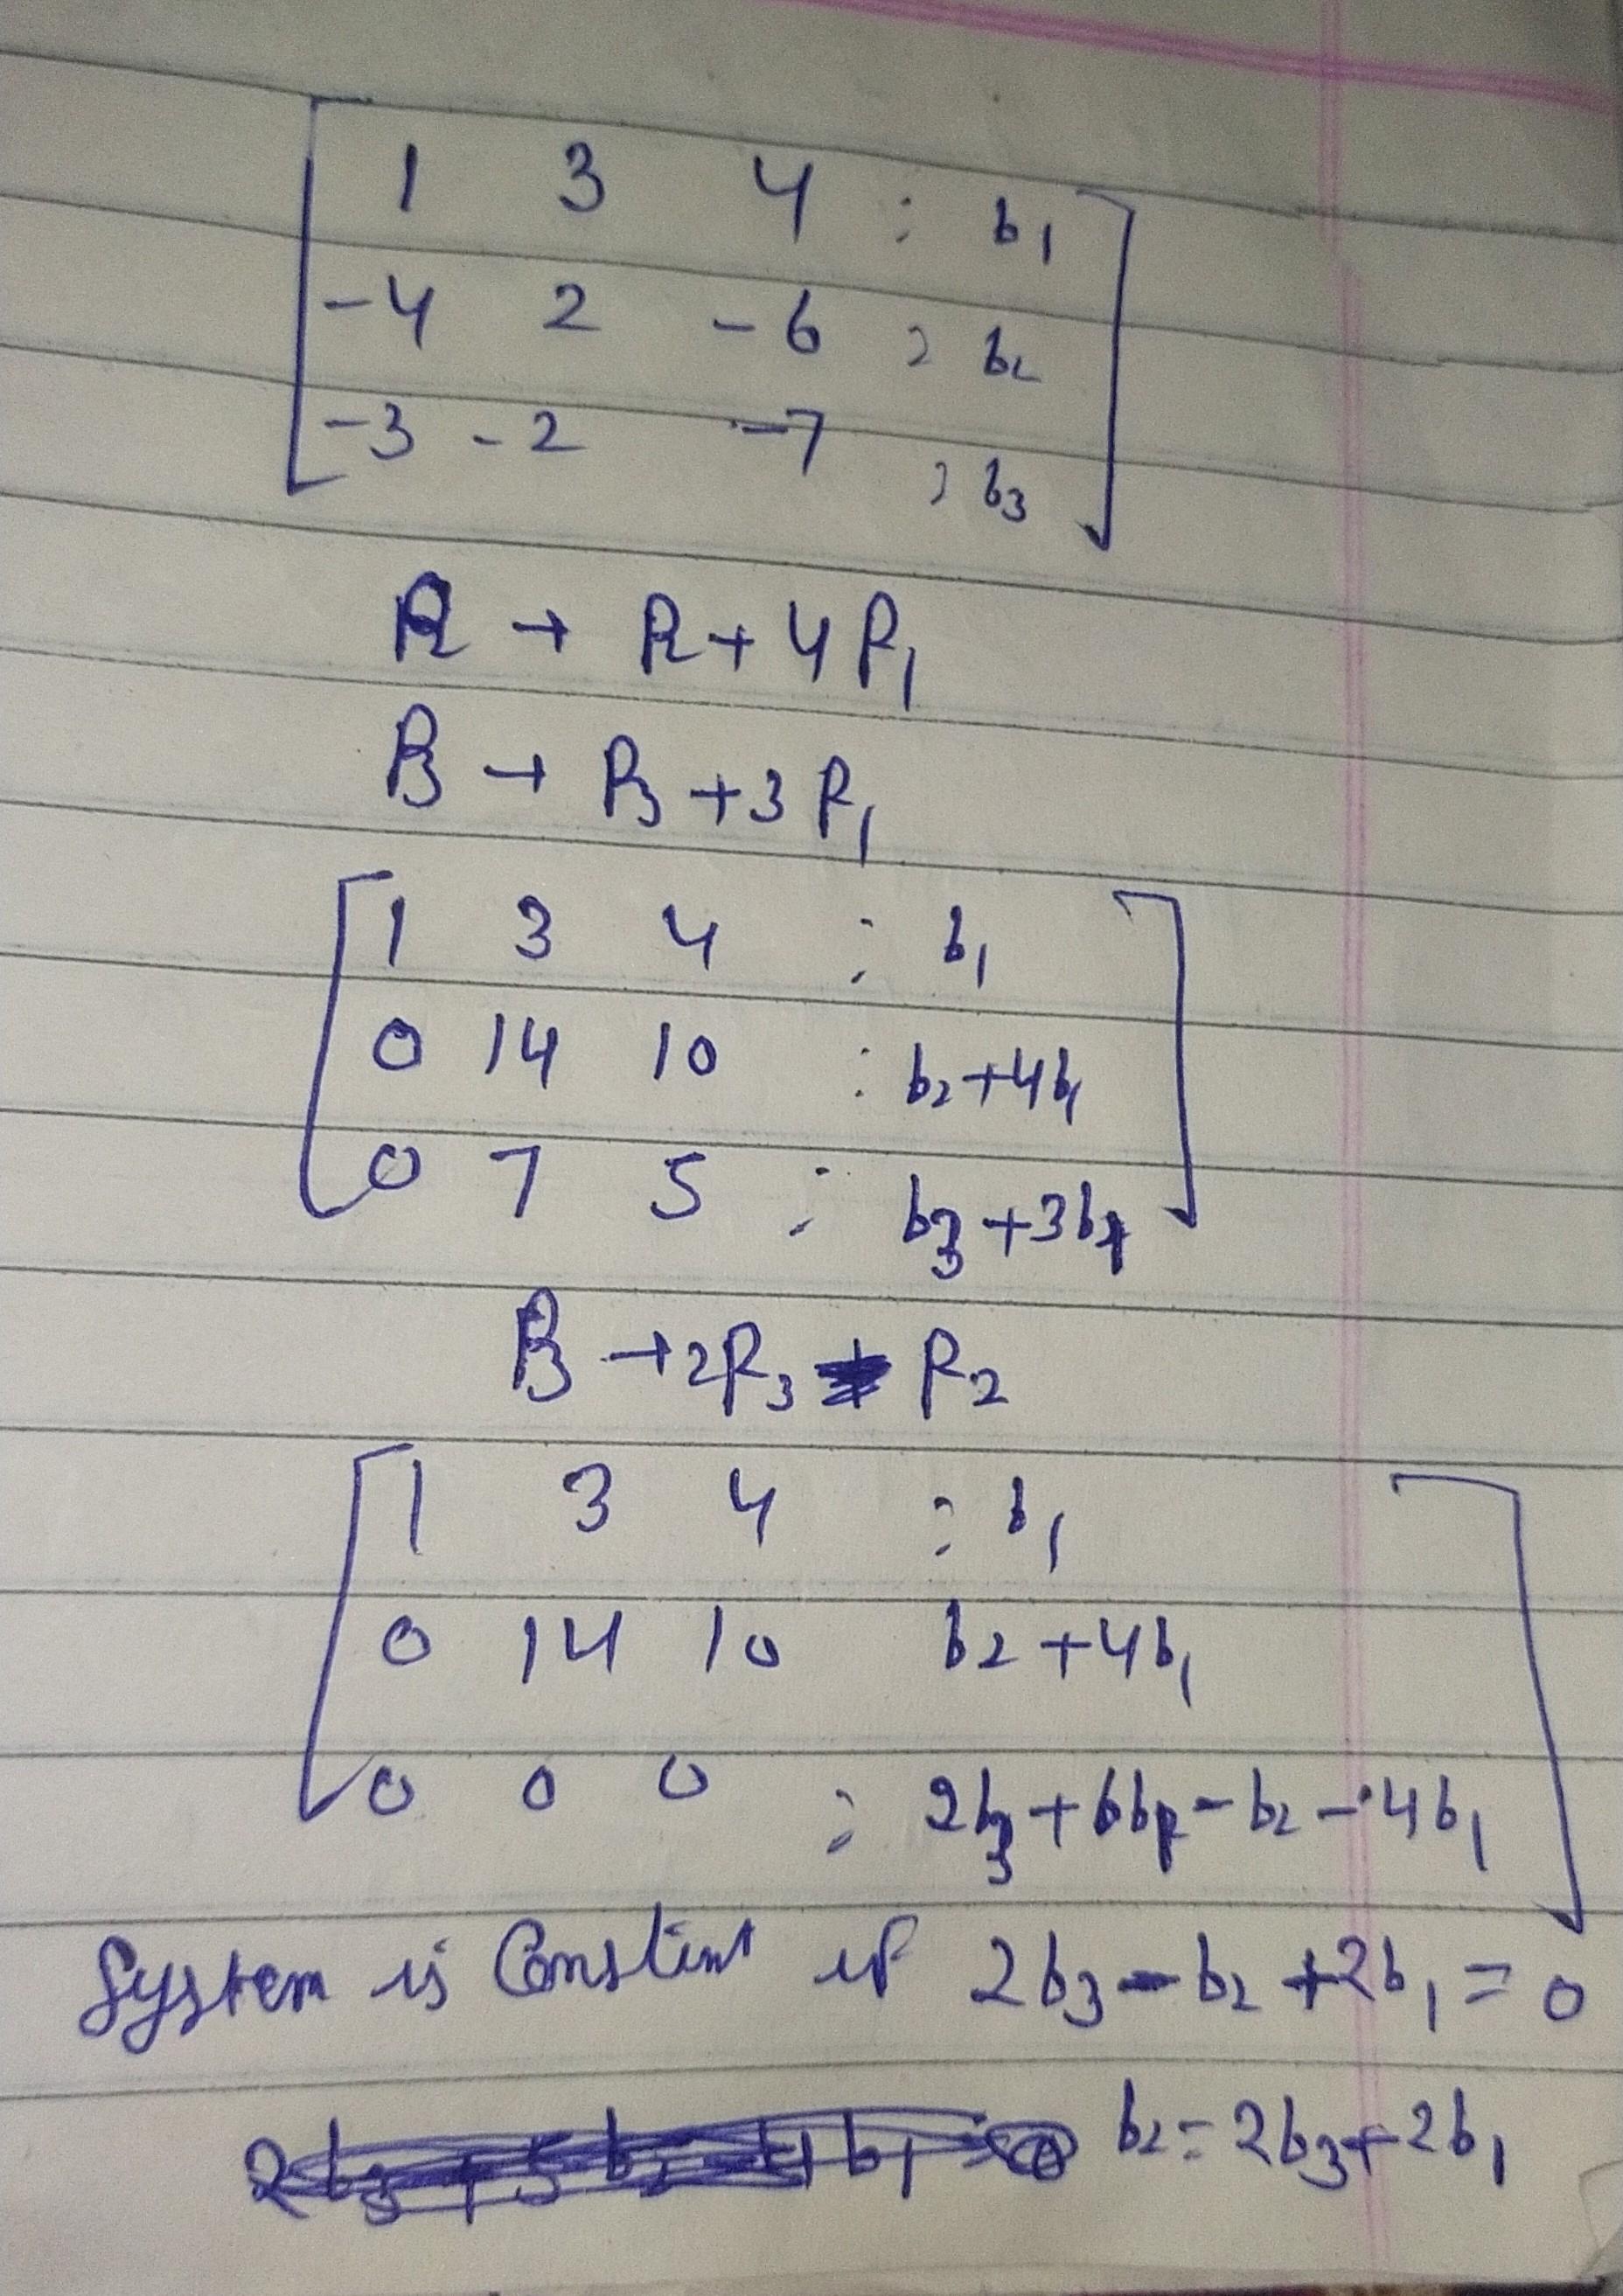 1 3 4 : b1
-4 2 -6 : b2
-3 -2 -7 : b3
R2 → R2 + 4R1
R3 → R3 + 3R1
1 3 4 : b1
0 14 10 : b2+4b1
0 7 5 : b3+3b1
R3 → 2R3 - R2
1 3 4 : b1
0 14 10 b2+4b1
0 0 0 : 2b3+6b1-b2-4b1
System is Constint if 2b3-b2+2b1=0
b2=2b3+2b1